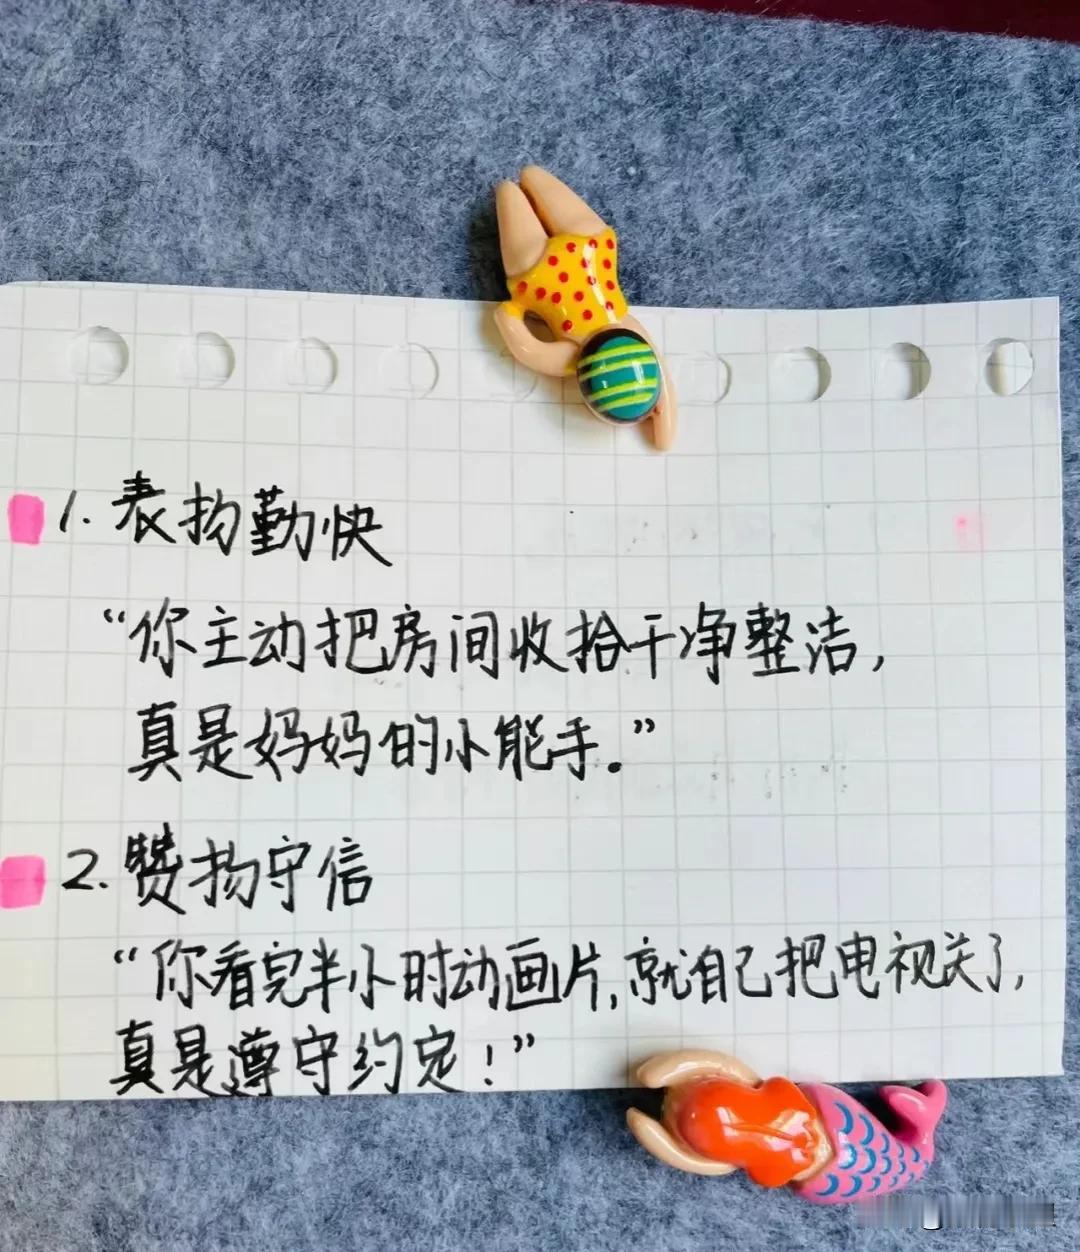 1. 表扬勤快
“你主动把房间收拾干净整洁,
真是妈妈的小能手.”
2. 赞扬守信
“你看完半小时动画片,就自己把电视关了,
真是遵守约定!”